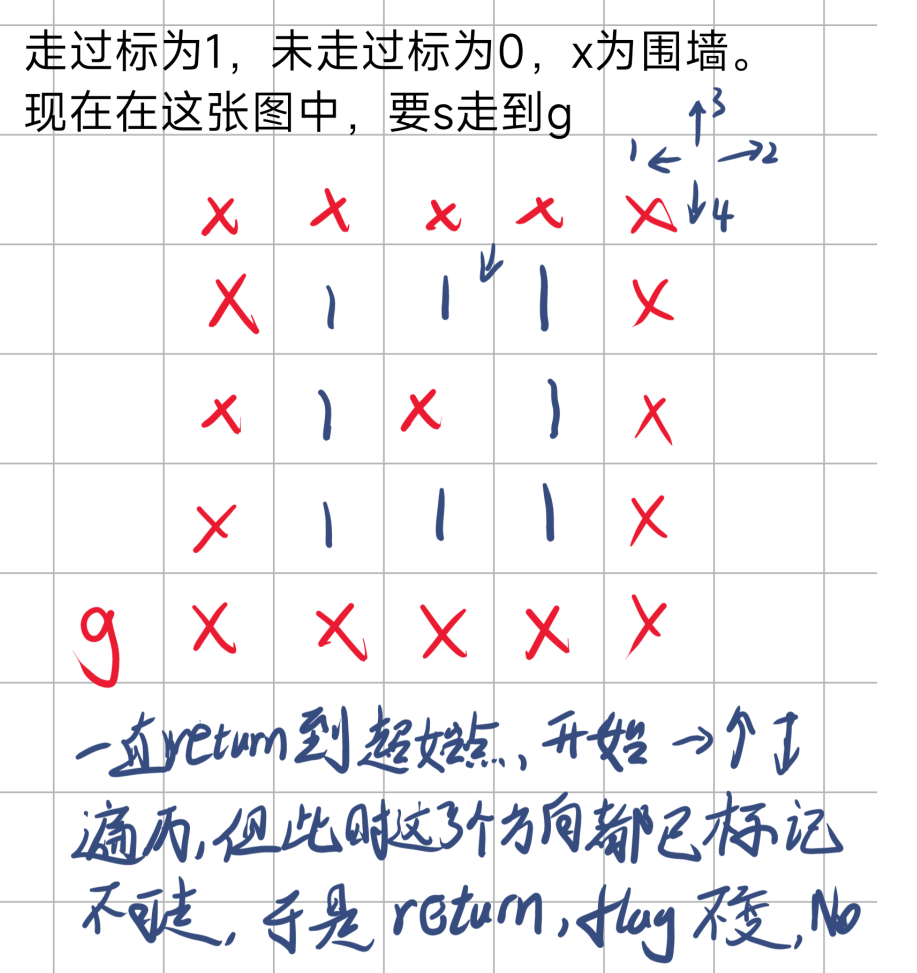 走过标为1，未走过标为0，x为围墙。
现在在这张图中，要s走到g
↑3
1 ← → 2
x x x x x ↓4
x 1 1 ↙ 1 x
x 1 x 1 x
x 1 1 1 x
g x x x x x
一直return到起始点，开始→↑↓
遍历，但此时这3个方向都已标记
不可走，于是return，flag不变，No